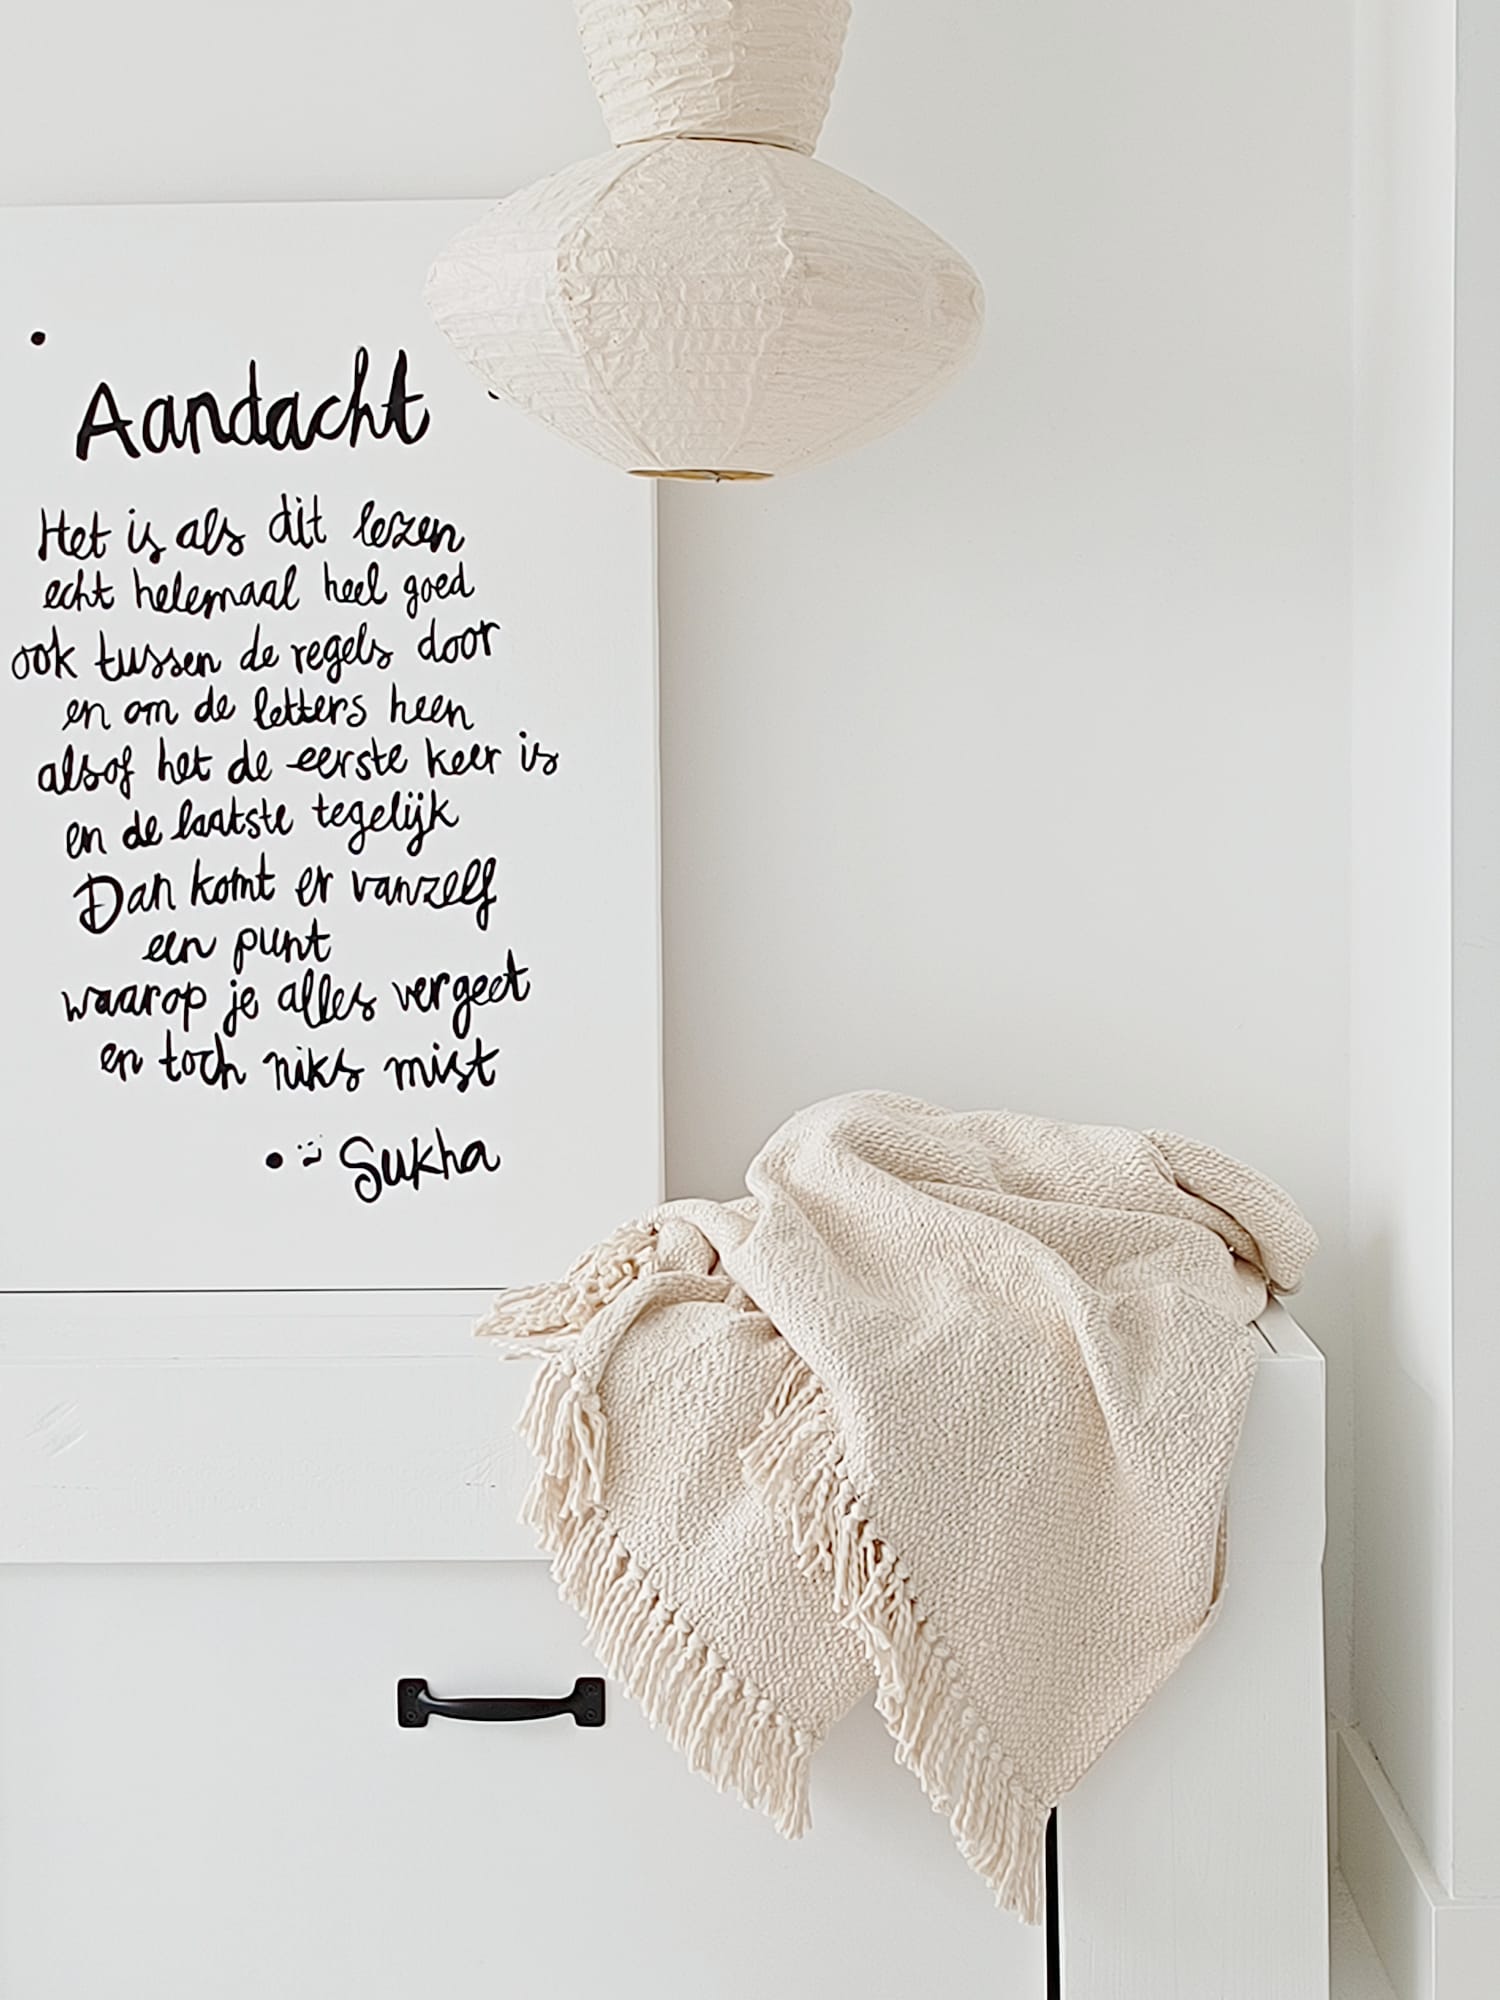 Aandacht
Het is als dit lezen
echt helemaal heel goed
ook tussen de regels door
en om de letters heen
alsof het de eerste keer is
en de laatste tegelijk
Dan komt er vanzelf
een punt
waarop je alles vergeet
en toch niks mist
Sukha